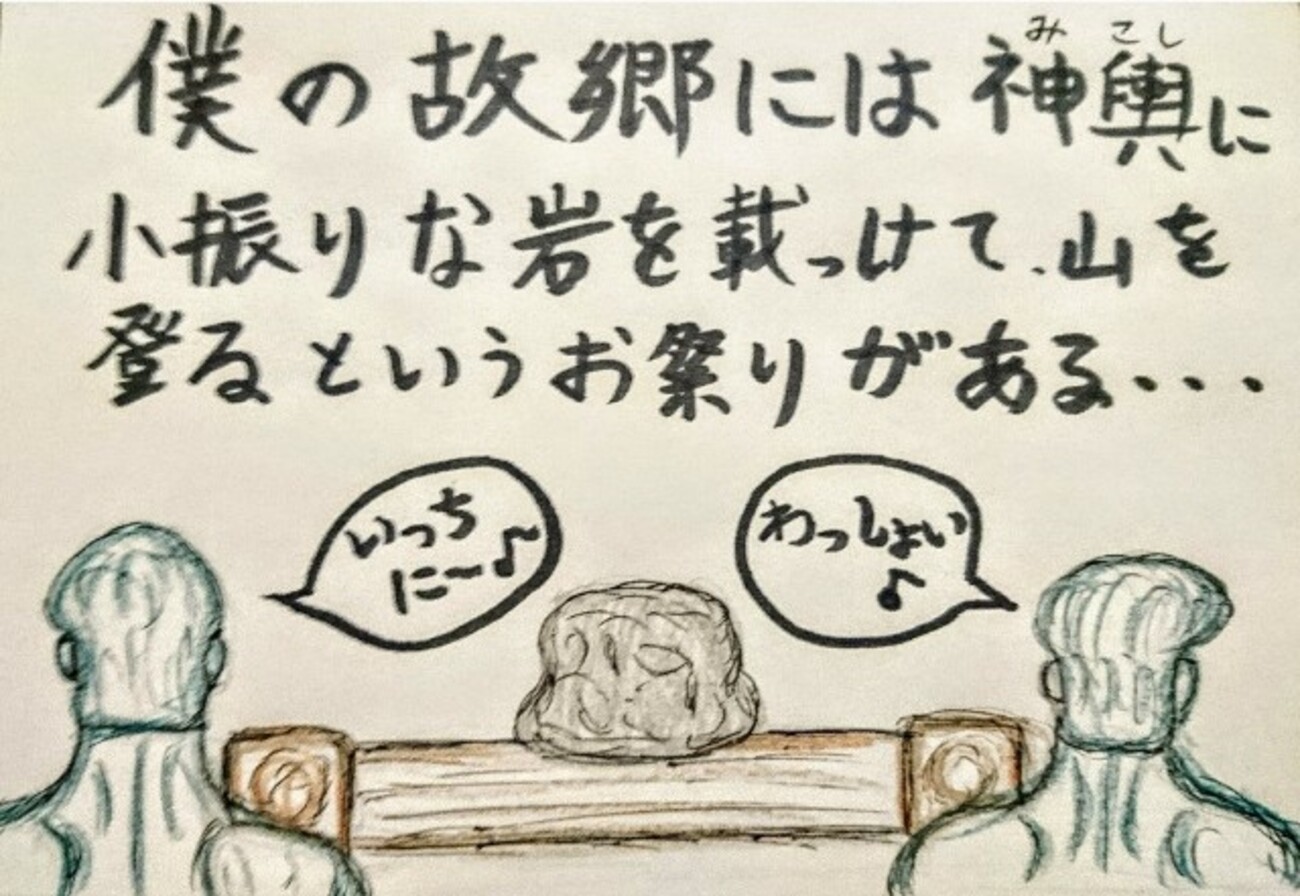 僕の故郷には神輿に
みこし
小振りな岩を載っけて、山を
登るというお祭りがある・・・
いっち
に〜♪
わっしょい
♪